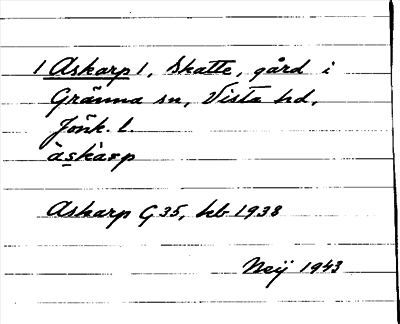 1 Askarp 1, Skatte, gård i
Gränna sn, Vista hd,
Jönk. l.
àskàrp
Askarp G 35, hb 1938
Neij 1943